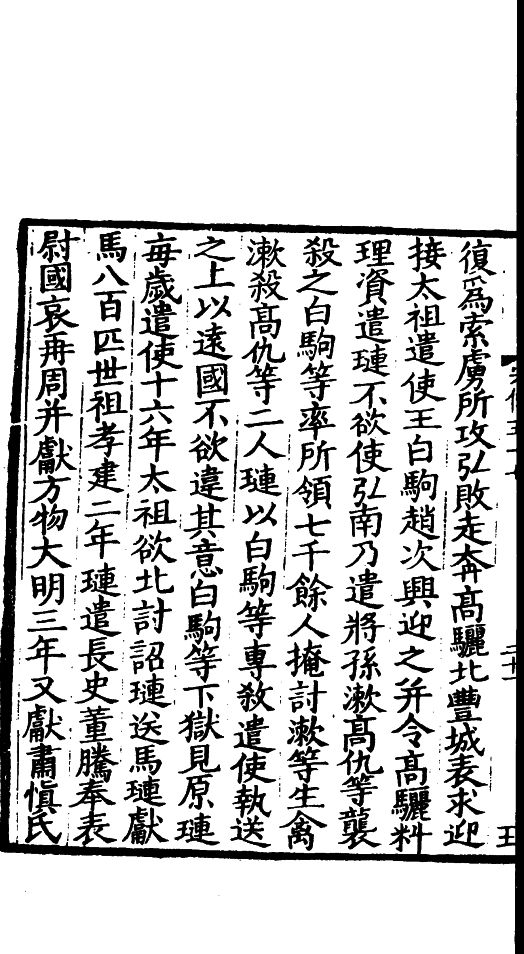 復爲索虜所攻弘敗走奔髙驪北豐城表求迎
接太祖遣使王白駒趙次興迎之并令髙驪料
理資遣璉不欲使弘南乃遣將孫漱髙仇等襲
殺之白駒等率所領七千餘人掩討漱等生禽
漱殺髙仇等二人璉以白駒等專殺遣使執送
之上以遠國不欲違其意白駒等下獄見原璉
每歲遣使十六年太祖欲北討詔璉送馬璉獻
馬八百匹世祖孝建二年璉遣長史董騰奉表
慰國哀再周并獻方物大明三年又獻肅愼氏